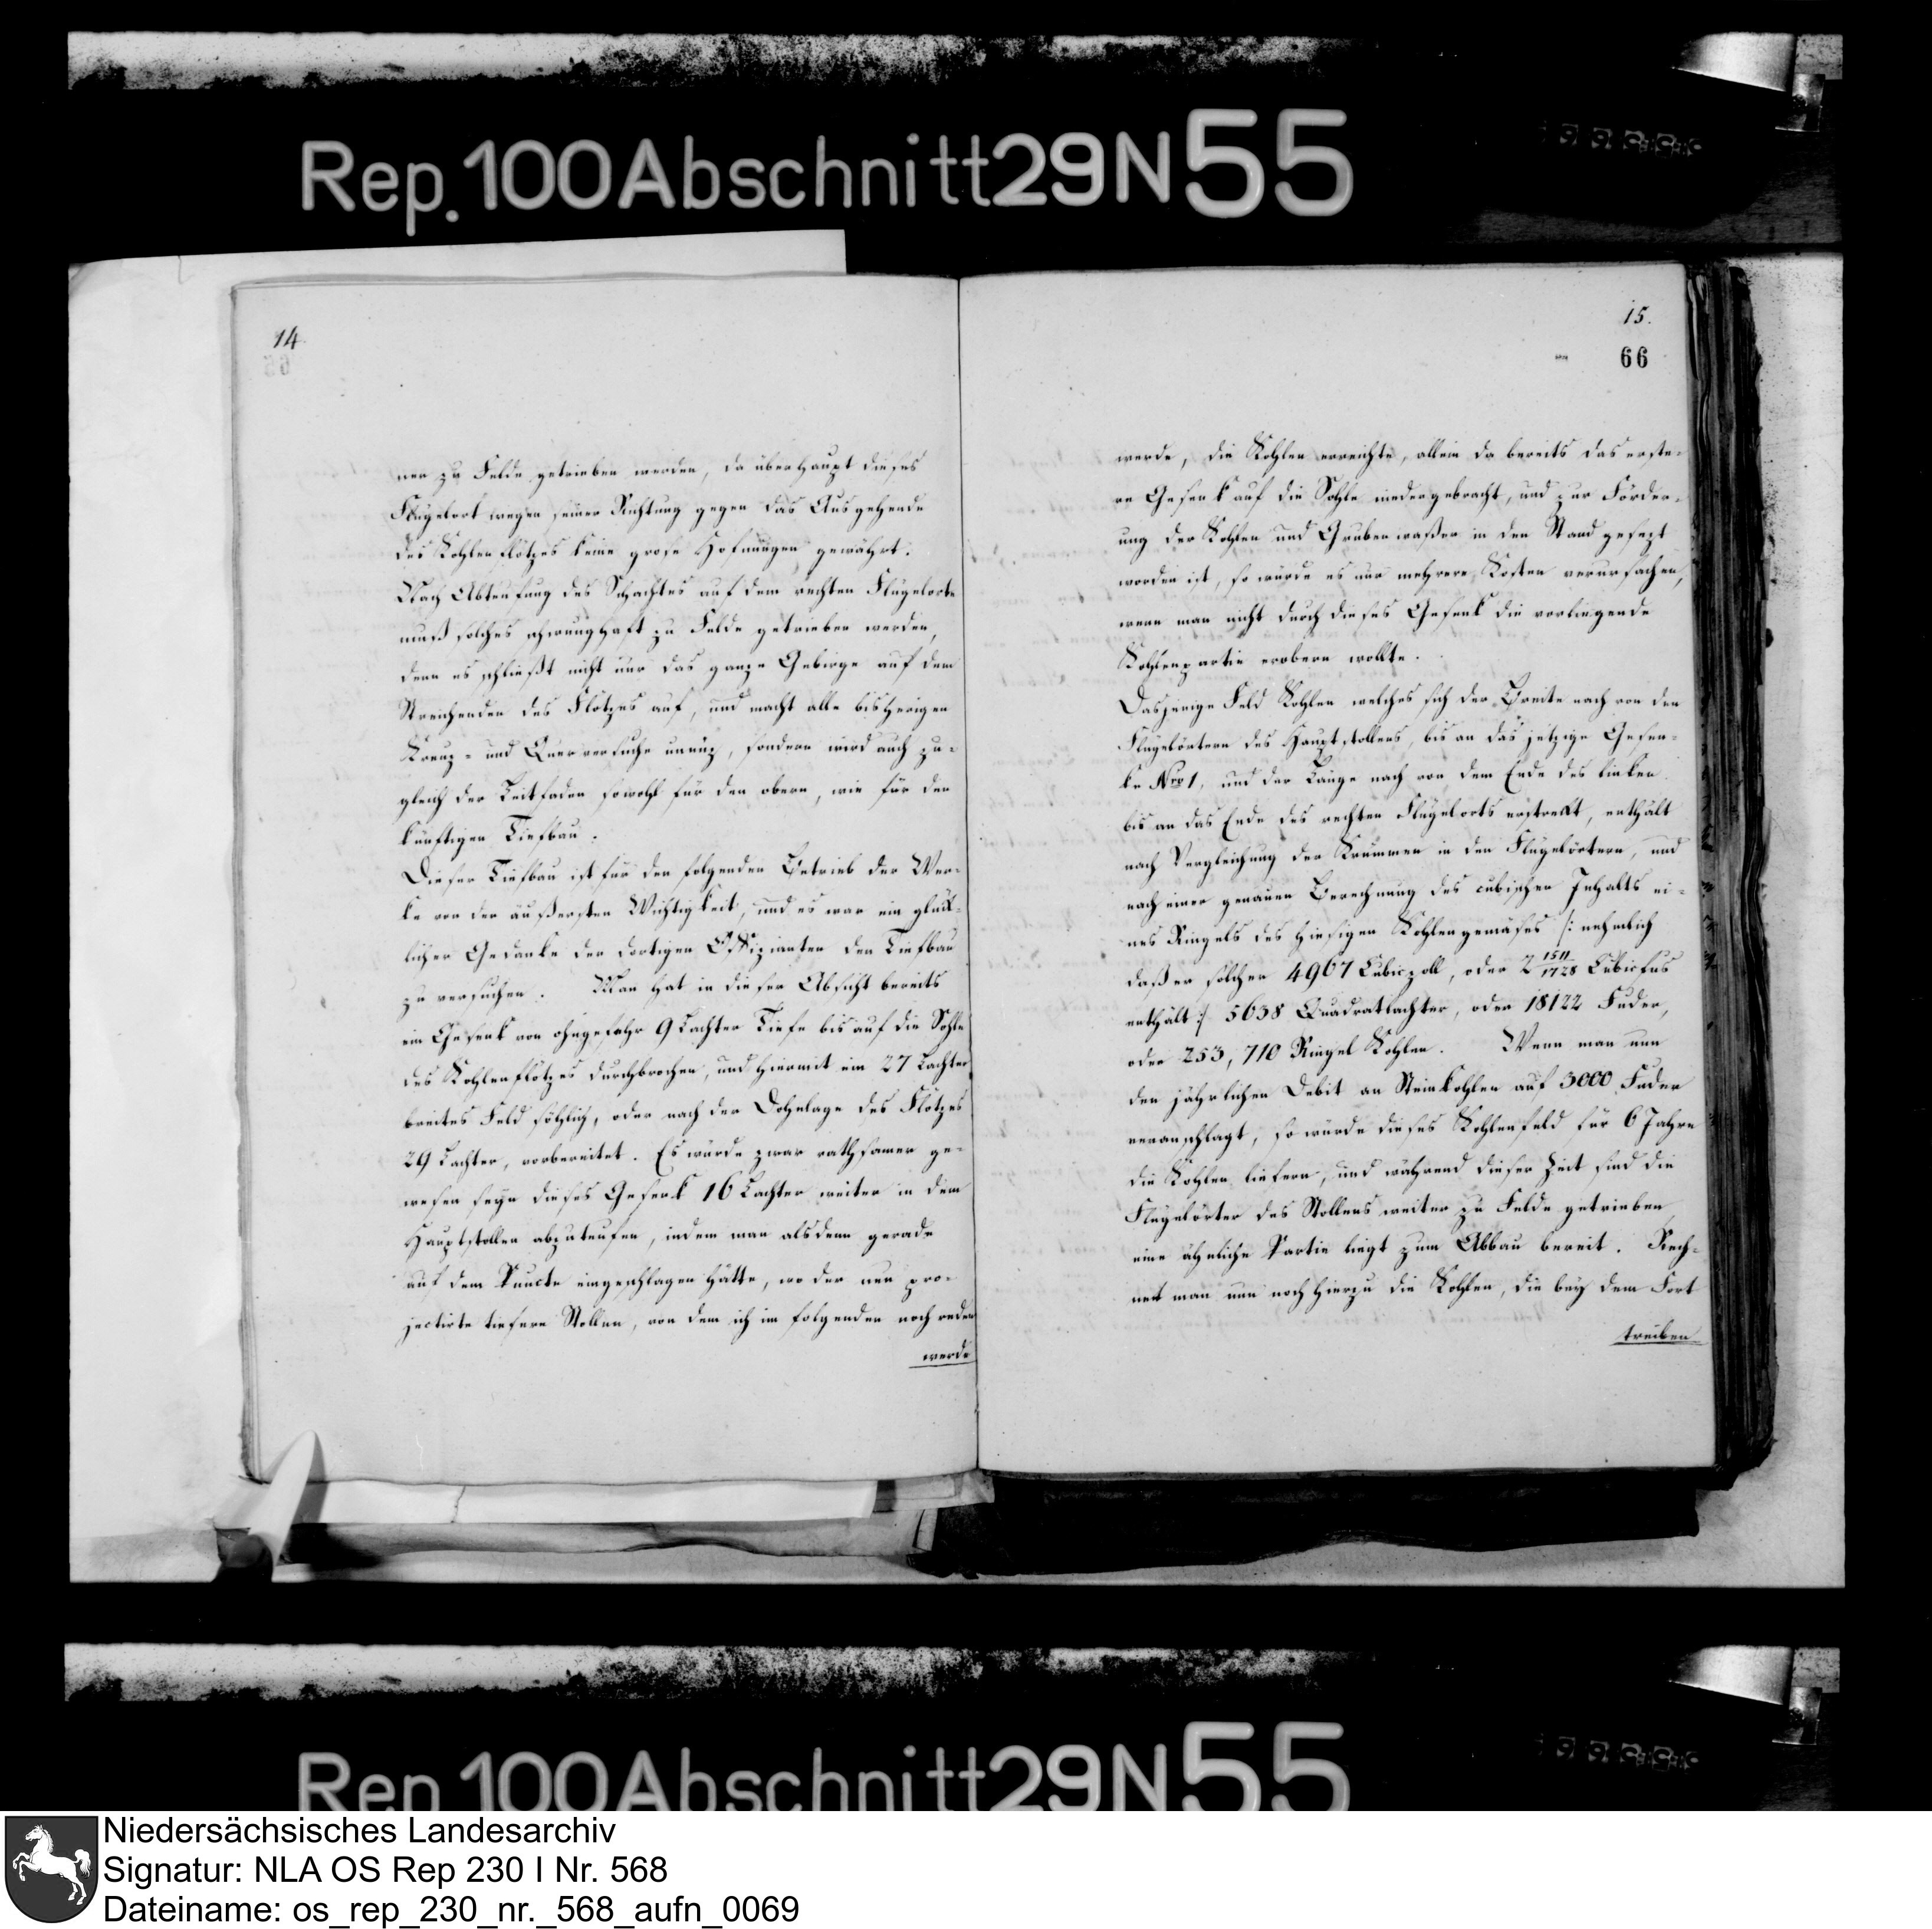 Rep. 100 Abschnitt 29 N 55
14
ner zu Felde getrieben werden, da überhaupt dieses
Flügelort wegen seiner Richtung gegen das Ausgehende
des Kohlenflötzes keine grose Hofnungen gewährt.
Nach Abteufung des Schachtes auf dem rechten Flügelorte
muß solches schwunghaft zu Felde getrieben werden,
denn es schließt nicht nur das ganze Gebirge auf dem
Streichenden des Flötzes auf, und macht alle bisherigen
Kreuz- und Querversuche unnüz, sondern wird auch zu-
gleich der Leitfaden sowohl für den obern, wie für den
künftigen Tiefbau.
Dieser Tiefbau ist für den folgenden Betrieb der Wer-
ke von der äußersten Wichtigkeit, und es war ein glük-
licher Gedanke der dortigen Offizianten den Tiefbau
zu versuchen. Man hat in dieser Absicht bereits
ein Gesenk von ohngefähr 9 Lachter Tiefe bis auf die Sohle
des Kohlenflötzes durchbrochen, und hiermit ein 27 Lachter
breites Feld söhlich, oder nach der Dohnlage des Flötzes
29 Lachter, vorbereitet. Es würde zwar rathsamer ge-
wesen seyn dieses Gesenk 16 Lachter weiter in dem
Hauptstollen abzuteufen, indem man alsdenn gerade
auf dem Puncte eingeschlagen hätte, wo der neu pro-
jectirte tiefere Stollen, von dem ich im folgenden noch reden
werde
15.
66
werde, die Kohlen erreichte, allein da bereits das erste-
re Gesenk auf die Sohle niedergebracht, und zur Förder-
ung der Kohlen und Grubenwaßer in den Stand gesezt
worden ist, so würde es nur mehrere Kosten verursachen,
wenn man nicht durch dieses Gesenk die vorliegende
Kohlenpartie erobern wollte.
Dasjenige Feld Kohlen welches sich der Breite nach von den
Flügelörtern des Hauptstollens, bis an das jetzige Gesen-
ke Nro 1, und der Länge nach von dem Ende des linken
bis an das Ende des rechten Flügelorts erstrekt, enthält
nach Vergleichung der Krümmen in den Flügelörtern, und
nach einer genauen Berechnung des cubischen Inhalts ei-
nes Ringels des hiesigen Kohlengemäses /: nehmlich
daß er solcher 4967 Cubiczoll, oder 2 1511/1728 Cubicfus
enthält :/ 5638 Quadratlachter, oder 18122 Fuder,
oder 253,710 Ringel Kohlen. Wenn man nun
den jährlichen Debit an Steinkohlen auf 3000 Fuder
veranschlagt, so würde dieses Kohlenfeld für 6 Jahre
die Kohlen liefern, und während dieser Zeit sind die
Flügelörter des Stollens weiter zu Felde getrieben
eine ähnliche Partie liegt zum Abbau bereit. Rech-
net man nun noch hierzu die Kohlen, die bey dem Fort
treiben
Rep. 100 Abschnitt 29 N 55
Niedersächsisches Landesarchiv
Signatur: NLA OS Rep 230 I Nr. 568
Dateiname: os_rep_230_nr._568_aufn_0069